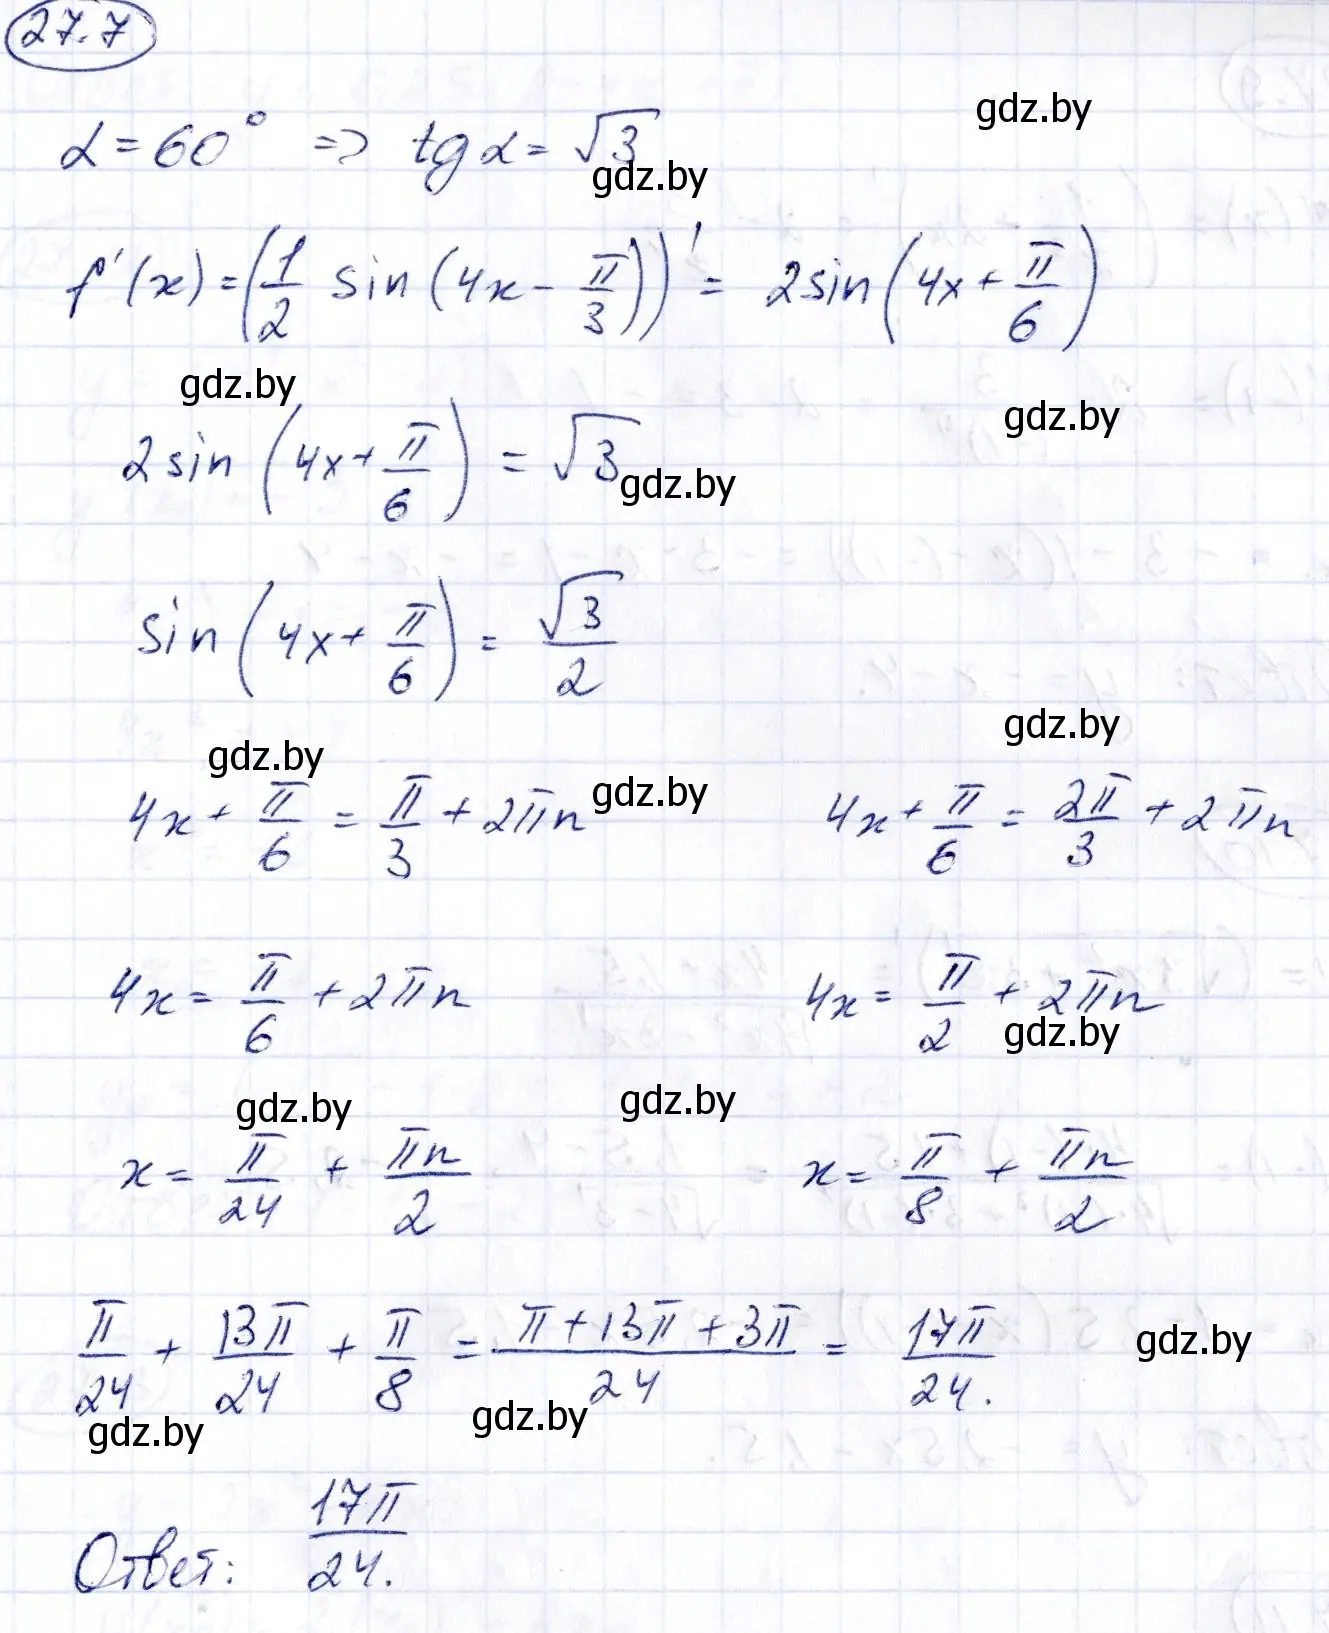 27.7
gdz.by
α = 60° => tg α = √3
gdz.by
f'(x) = (1/2 sin(4x - π/3))' = 2sin(4x + π/6)
gdz.by
gdz.by
2sin(4x + π/6) = √3
gdz.by
sin(4x + π/6) = √3/2
gdz.by
gdz.by
gdz.by
4x + π/6 = π/3 + 2πn 4x + π/6 = 2π/3 + 2πn
4x = π/6 + 2πn 4x = π/2 + 2πn
gdz.by
gdz.by
gdz.by
x = π/24 + πn/2 x = π/8 + πn/2
π/24 + 13π/24 + π/8 = (π + 13π + 3π)/24 = 17π/24.
gdz.by
gdz.by
gdz.by
Ответ: 17π/24.